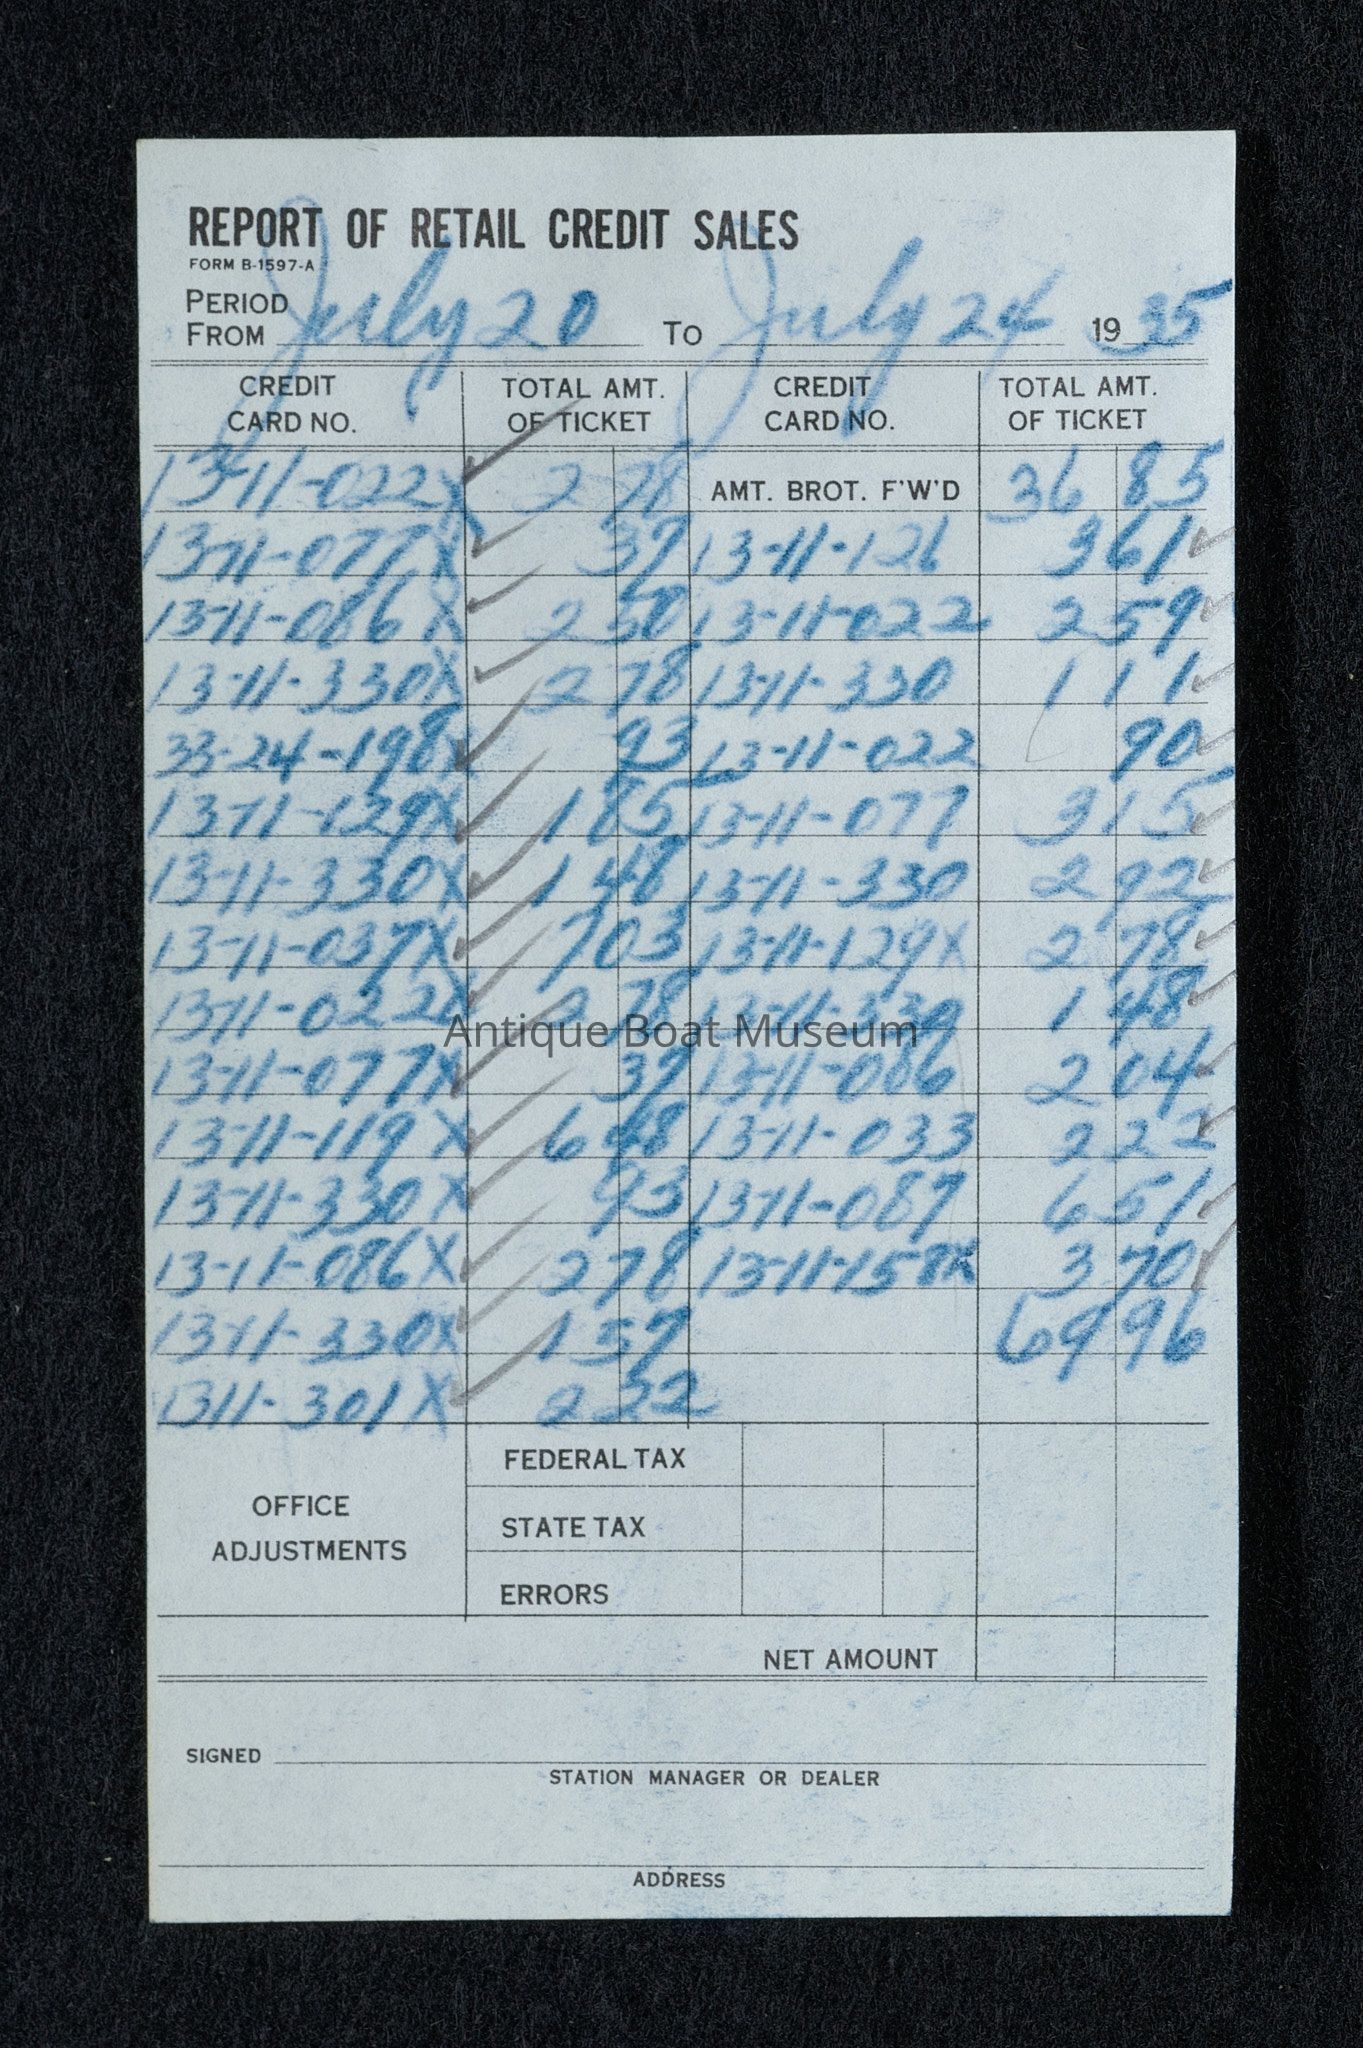 REPORT OF RETAIL CREDIT SALES
FORM B-1597-A
PERIOD
FROM July 20 TO July 24 1935
CREDIT CARD NO. TOTAL AMT. OF TICKET CREDIT CARD NO. TOTAL AMT. OF TICKET
13-11-022 X 2 78 AMT. BROT. F'W'D 36 85
13-11-077 X 37 13-11-126 3 61
13-11-086 X 2 50 13-11-022 2 59
13-11-330 X 2 78 13-11-330 1 11
33-24-198 X 93 13-11-022 90
13-11-129 X 1 85 13-11-077 3 15
13-11-330 X 1 48 13-11-330 2 92
13-11-037 X 7 03 13-11-129 X 2 78
13-11-022 X 2 78 13-11-330 1 48
Antique Boat Museum
13-11-077 X 37 13-11-086 2 04
13-11-119 X 6 48 13-11-033 2 22
13-11-330 X 93 13-11-087 6 51
13-11-086 X 2 78 13-11-158 X 3 70
13-11-330 X 1 57 69 96
1311-301 X 2 22
OFFICE ADJUSTMENTS
FEDERAL TAX
STATE TAX
ERRORS
NET AMOUNT
SIGNED
STATION MANAGER OR DEALER
ADDRESS